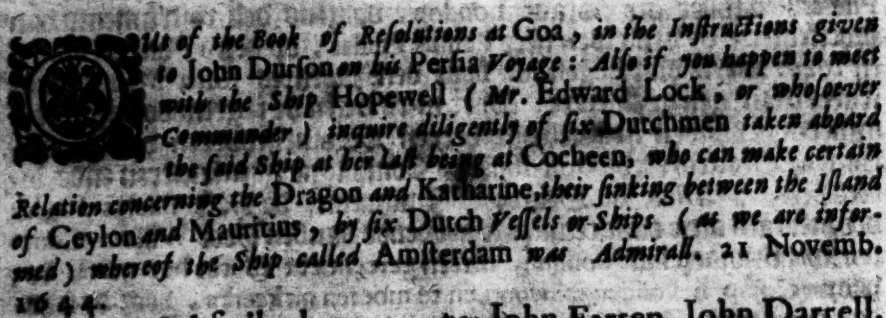 OUt of the Book of Reſolutions at Goa, in the Inſtructions given
to John Durſon on his Perſia Voyage: Alſo if you happen to meet
with the Ship Hopewell (Mr. Edward Lock, or whoſoever
Commander) inquire diligently of ſix Dutchmen taken aboard
the ſaid Ship at her laſt being at Cocheen, who can make certain
Relation concerning the Dragon and Katharine, their ſinking between the Iſland
of Ceylon and Mauritius, by ſix Dutch Veſſels or Ships (as we are infor-
med) whereof the Ship called Amſterdam was Admirall. 21 Novemb.
1644.
John Farren, John Darrell,